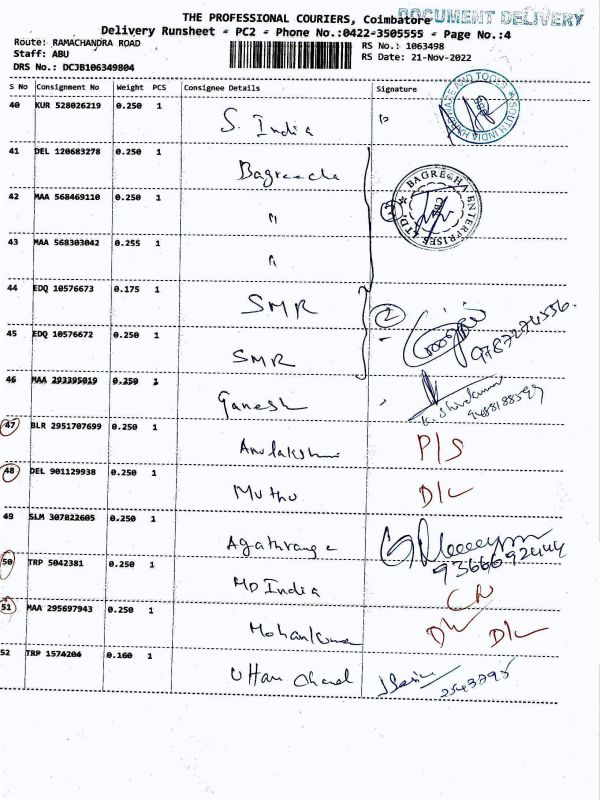 DOCUMENT DELIVERY
THE PROFESSIONAL COURIERS, Coimbatore
Delivery Runsheet - PC2 - Phone No.:0422-3505555 - Page No.:4
Route: RAMACHANDRA ROAD
Staff: ABU
DRS No.: DCJB106349804
RS No.: 1063498
RS Date: 21-Nov-2022
S No Consignment No Weight PCS Consignee Details Signature
40 KUR 528026219 0.250 1 S. India
SOUTH INDIA HARDWARE AND TOOLS
41 DEL 120683278 0.250 1 Bagreecha
BAGRECHA ENTERPRISES LTD,
42 MAA 568469110 0.250 1 "
43 MAA 568303042 0.255 1 "
44 EDQ 10576673 0.175 1 SMR 2
45 EDQ 10576672 0.250 1 SMR 9787274556.
46 MAA 293395019 0.250 1 Ganesh
47 BLR 2951707699 0.250 1 P/S
48 DEL 901129938 0.250 1 Muthu D/L
49 SLM 307022605 0.250 1 9366692444
50 TRP 5042381 0.250 1 MD India
51 MAA 295697943 0.250 1 Mohankumar D/L D/L
52 TRP 1574204 0.160 1 Uttam Chand